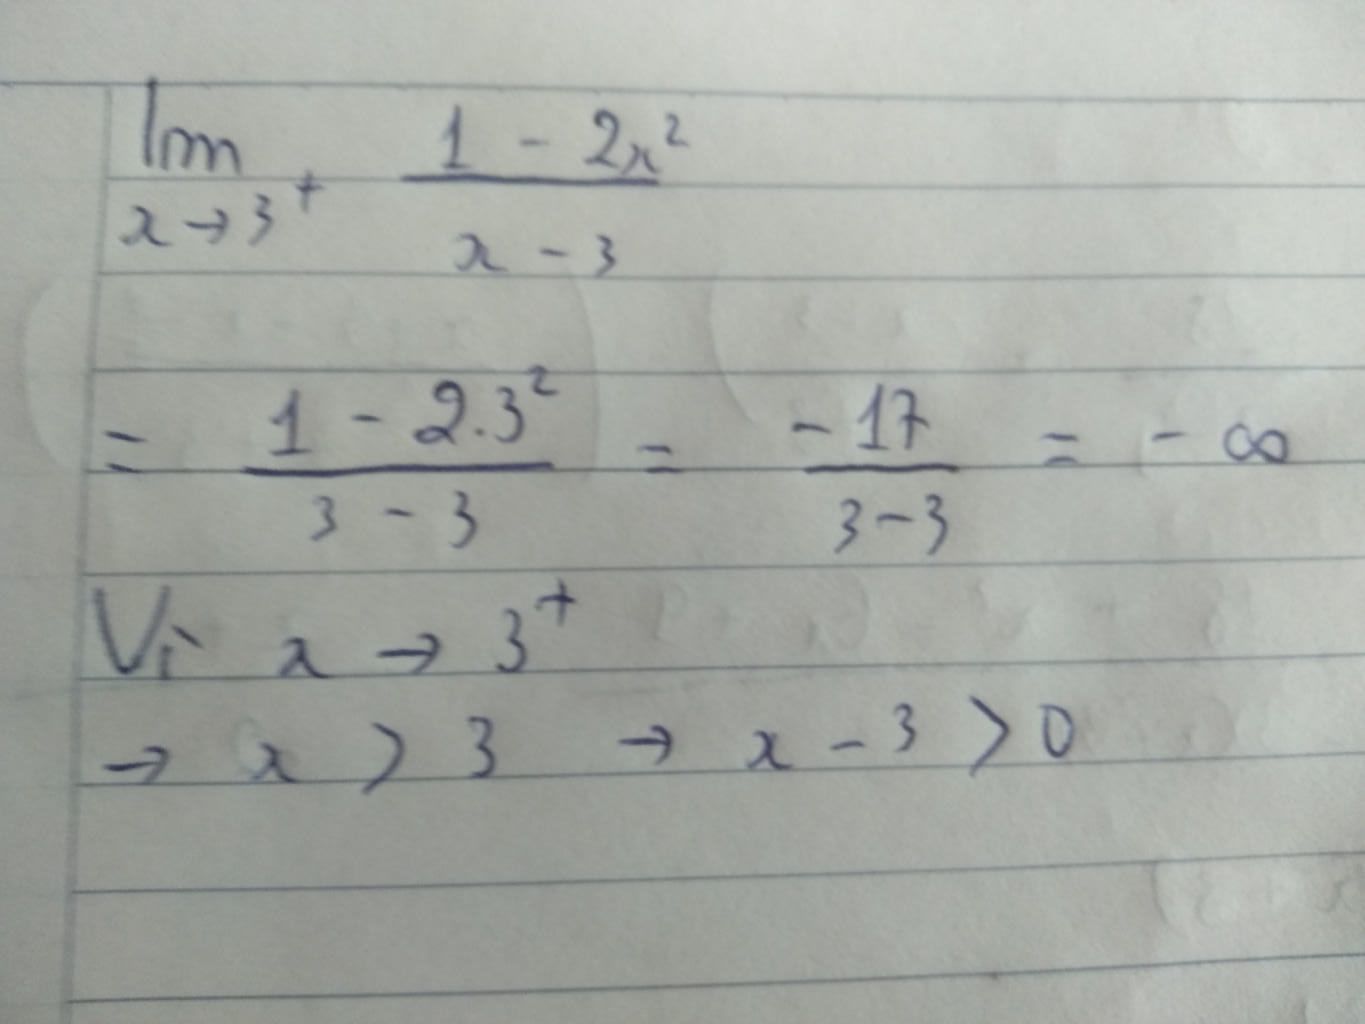 lim x→3⁺ (1 - 2x²)/(x - 3)
= (1 - 2.3²)/(3 - 3) = (-17)/(3-3) = - ∞
Vì x → 3⁺
→ x > 3 → x - 3 > 0